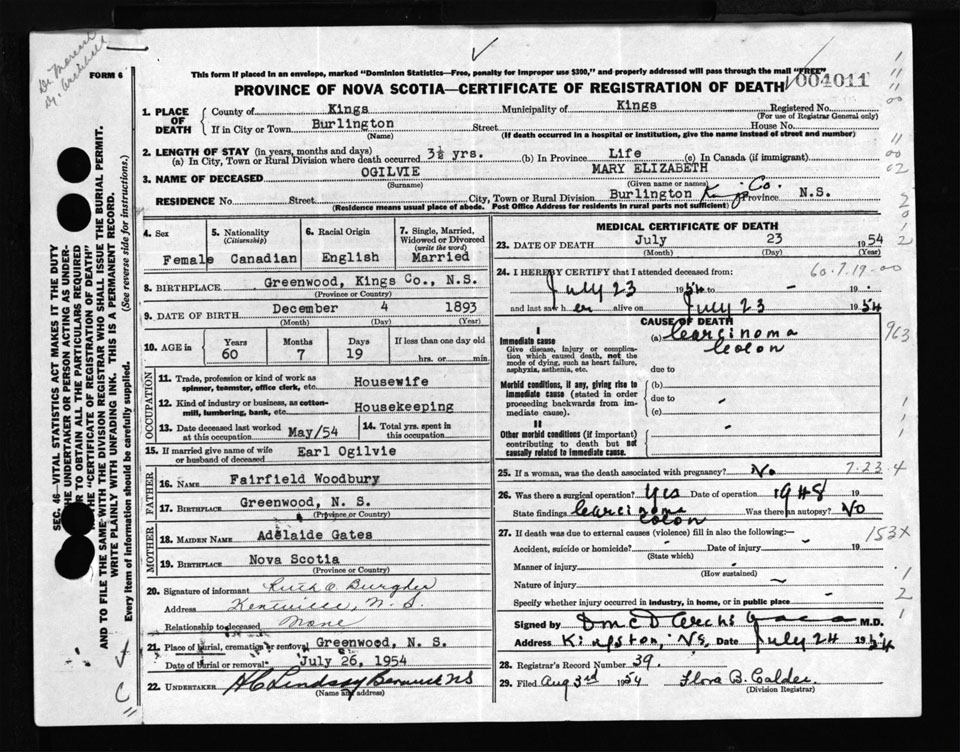 FORM 6
This form if placed in an envelope, marked "Dominion Statistics—Free, penalty for improper use $300," and properly addressed will pass through the mail "FREE"
004011
PROVINCE OF NOVA SCOTIA—CERTIFICATE OF REGISTRATION OF DEATH
1. PLACE OF DEATH County of Kings Municipality of Kings Registered No.
(For use of Registrar General only)
If in City or Town Burlington Street House No.
(Name) (If death occurred in a hospital or institution, give the name instead of street and number)
2. LENGTH OF STAY (in years, months and days)
(a) In City, Town or Rural Division where death occurred 3½ yrs. (b) In Province Life (c) In Canada (if immigrant)
3. NAME OF DECEASED OGILVIE MARY ELIZABETH
(Surname) (Given name or names)
RESIDENCE No. Street City, Town or Rural Division Burlington Kings Co. Province N.S.
(Residence means usual place of abode. Post Office Address for residents in rural parts not sufficient)
4. Sex
Female
5. Nationality
(Citizenship)
Canadian
6. Racial Origin
English
7. Single, Married, Widowed or Divorced
(write the word)
Married
8. BIRTHPLACE Greenwood, Kings Co., N.S.
(Province or Country)
9. DATE OF BIRTH December 4 1893
(Month) (Day) (Year)
10. AGE in Years Months Days If less than one day old
60 7 19 hrs. or min.
OCCUPATION
11. Trade, profession or kind of work as spinner, teamster, office clerk, etc. Housewife
12. Kind of industry or business, as cotton-mill, lumbering, bank, etc. Housekeeping
13. Date deceased last worked at this occupation May/54
14. Total yrs. spent in this occupation
15. If married give name of wife or husband of deceased Earl Ogilvie
FATHER
16. Name Fairfield Woodbury
17. Birthplace Greenwood, N. S.
(Province or Country)
MOTHER
18. MAIDEN NAME Adelaide Gates
19. BIRTHPLACE Nova Scotia
(Province or Country)
20. Signature of informant Ruth A. Burgher
Address Kentville, N. S.
Relationship to deceased None
21. Place of burial, cremation or removal Greenwood, N. S.
Date of burial or removal July 26, 1954
22. UNDERTAKER H C Lindsay Berwick NS
(Name and address)
MEDICAL CERTIFICATE OF DEATH
23. DATE OF DEATH July 23 1954
(Month) (Day) (Year)
24. I HEREBY CERTIFY that I attended deceased from:
60-7-19-00
July 23 1954 to 19
and last saw her alive on July 23 1954
CAUSE OF DEATH
I
Immediate cause
Give disease, injury or complication which caused death, not the mode of dying, such as heart failure, asphyxia, asthenia, etc.
(a) Carcinoma
Colon
963
due to
Morbid conditions, if any, giving rise to immediate cause (stated in order proceeding backwards from immediate cause).
(b)
due to
(c)
II
Other morbid conditions (if important) contributing to death but not causally related to immediate cause.
25. If a woman, was the death associated with pregnancy? No
7-23-4
26. Was there a surgical operation? Yes Date of operation 1948 19
State findings Carcinoma Colon Was there an autopsy? No
27. If death was due to external causes (violence) fill in also the following:—
153X
Accident, suicide or homicide? Date of injury 19
(State which)
Manner of injury
(How sustained)
Nature of injury
Specify whether injury occurred in industry, in home, or in public place
Signed by M.D.
Address Kingston, N.S. Date July 24 1954
28. Registrar's Record Number 39.
29. Filed Aug 3rd 1954 Flora B. Calder
(Division Registrar)
SEC. 46—VITAL STATISTICS ACT MAKES IT THE DUTY
THE UNDERTAKER OR PERSON ACTING AS UNDER-
R TO OBTAIN ALL THE PARTICULARS REQUIRED
THE "CERTIFICATE OF REGISTRATION OF DEATH"
AND TO FILE THE SAME WITH THE DIVISION REGISTRAR WHO SHALL ISSUE THE BURIAL PERMIT.
WRITE PLAINLY WITH UNFADING INK. THIS IS A PERMANENT RECORD.
Every item of information should be carefully supplied. (See reverse side for instructions.)